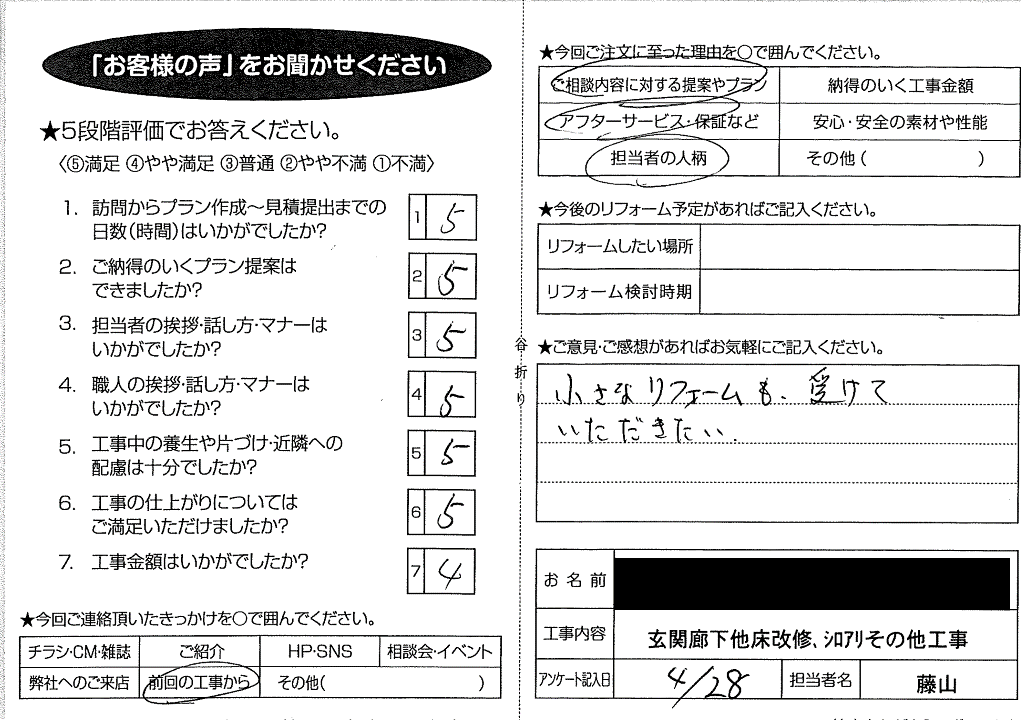 「お客様の声」をお聞かせください
★5段階評価でお答えください。
〈⑤満足 ④やや満足 ③普通 ②やや不満 ①不満〉
1. 訪問からプラン作成〜見積提出までの
日数(時間)はいかがでしたか?
1 5
2. ご納得のいくプラン提案は
できましたか?
2 5
3. 担当者の挨拶・話し方・マナーは
いかがでしたか?
3 5
4. 職人の挨拶・話し方・マナーは
いかがでしたか?
4 5
5. 工事中の養生や片づけ・近隣への
配慮は十分でしたか?
5 5
6. 工事の仕上がりについては
ご満足いただけましたか?
6 5
7. 工事金額はいかがでしたか?
7 4
★今回ご連絡頂いたきっかけを○で囲んでください。
チラシ・CM・雑誌 ご紹介 HP・SNS 相談会・イベント
弊社へのご来店 前回の工事から その他( )
谷折り
★今回ご注文に至った理由を○で囲んでください。
ご相談内容に対する提案やプラン 納得のいく工事金額
アフターサービス・保証など 安心・安全の素材や性能
担当者の人柄 その他( )
★今後のリフォーム予定があればご記入ください。
リフォームしたい場所
リフォーム検討時期
★ご意見・ご感想があればお気軽にご記入ください。
小さなリフォームも、受けて
いただきたい.
お名前
工事内容 玄関廊下他床改修、ｼﾛｱﾘその他工事
アンケート記入日 4/28 担当者名 藤山